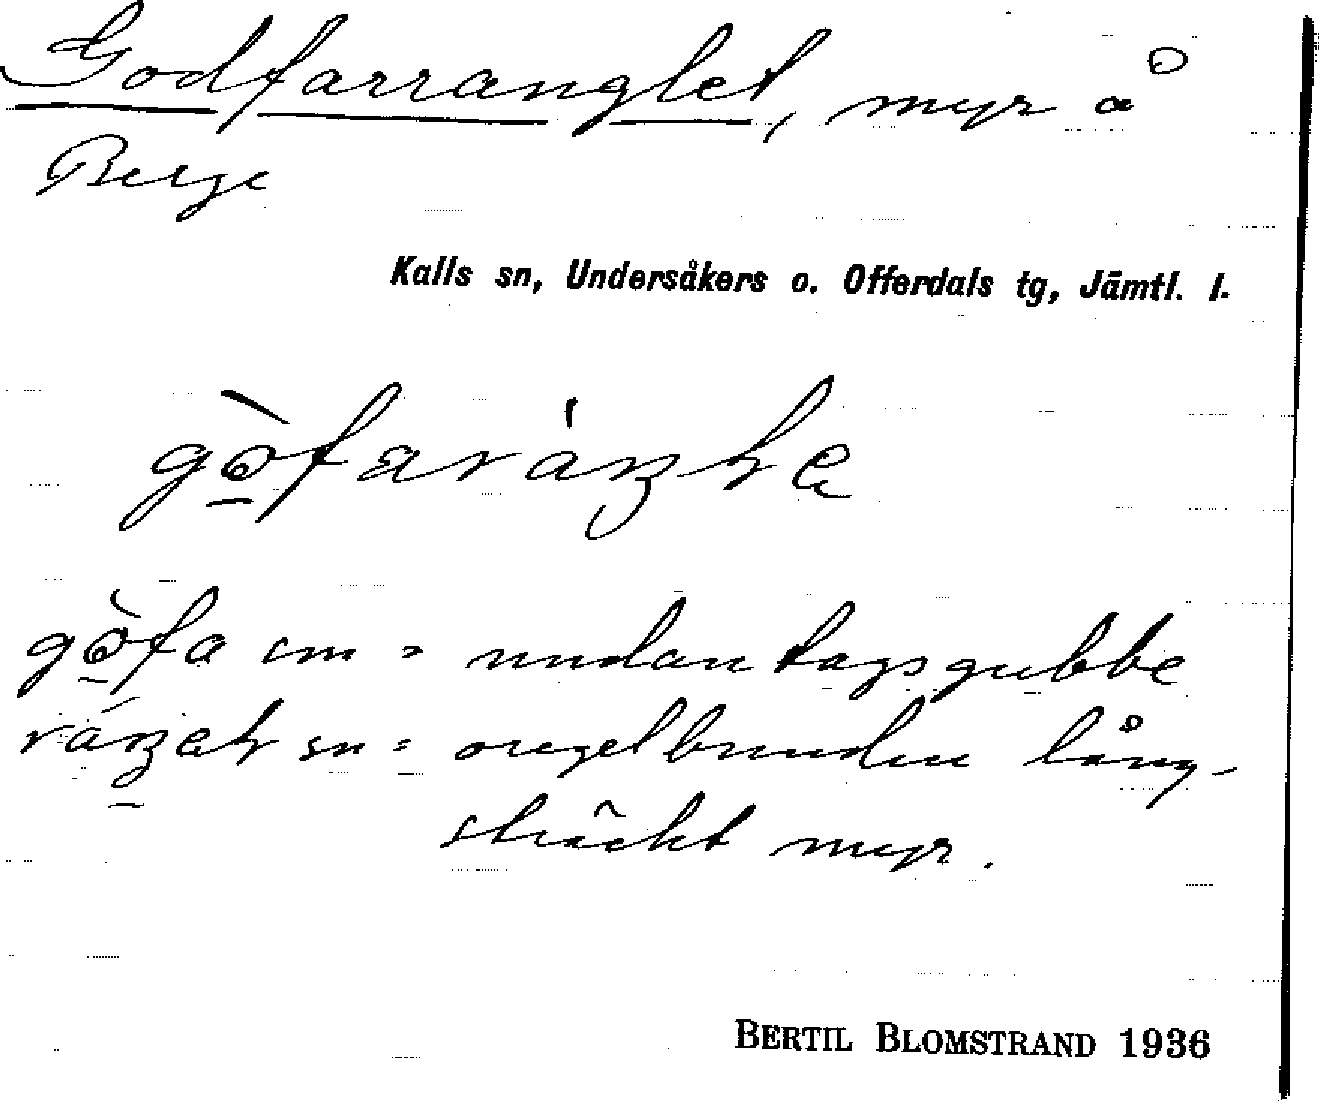 Godfarranglet, myr å
Berge
Kalls sn, Undersåkers o. Offerdals tg, Jämtl. l.
gòfa sm = undantagsgubbe
sn = oregelbunden lång-
sträckt myr.
BERTIL BLOMSTRAND 1936